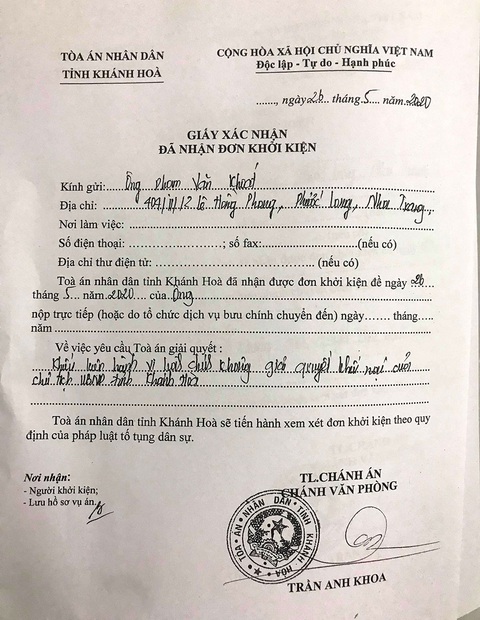 TÒA ÁN NHÂN DÂN
TỈNH KHÁNH HOÀ
CỘNG HÒA XÃ HỘI CHỦ NGHĨA VIỆT NAM
Độc lập - Tự do - Hạnh phúc
......., ngày 26 tháng 5 năm 2020
GIẤY XÁC NHẬN
ĐÃ NHẬN ĐƠN KHỞI KIỆN
Kính gửi: Ông Phạm Văn
Địa chỉ: Lê Hồng Phong, Phước Long, Nha Trang
Nơi làm việc:
Số điện thoại: ; số fax: (nếu có)
Địa chỉ thư điện tử: (nếu có)
Toà án nhân dân tỉnh Khánh Hoà đã nhận được đơn khởi kiện đề ngày 26
tháng 5 năm 2020 của Ông
nộp trực tiếp (hoặc do tổ chức dịch vụ bưu chính chuyển đến) ngày...... tháng....
năm
Về việc yêu cầu Toà án giải quyết :
Khởi kiện hành vi hành chính không giải quyết khiếu nại của
chủ tịch UBND tỉnh Khánh Hoà
Toà án nhân dân tỉnh Khánh Hoà sẽ tiến hành xem xét đơn khởi kiện theo quy
định của pháp luật tố tụng dân sự.
Nơi nhận:
- Người khởi kiện;
- Lưu hồ sơ vụ án.
TL.CHÁNH ÁN
CHÁNH VĂN PHÒNG
TOÀ ÁN NHÂN DÂN TỈNH KHÁNH HÒA
TRẦN ANH KHOA